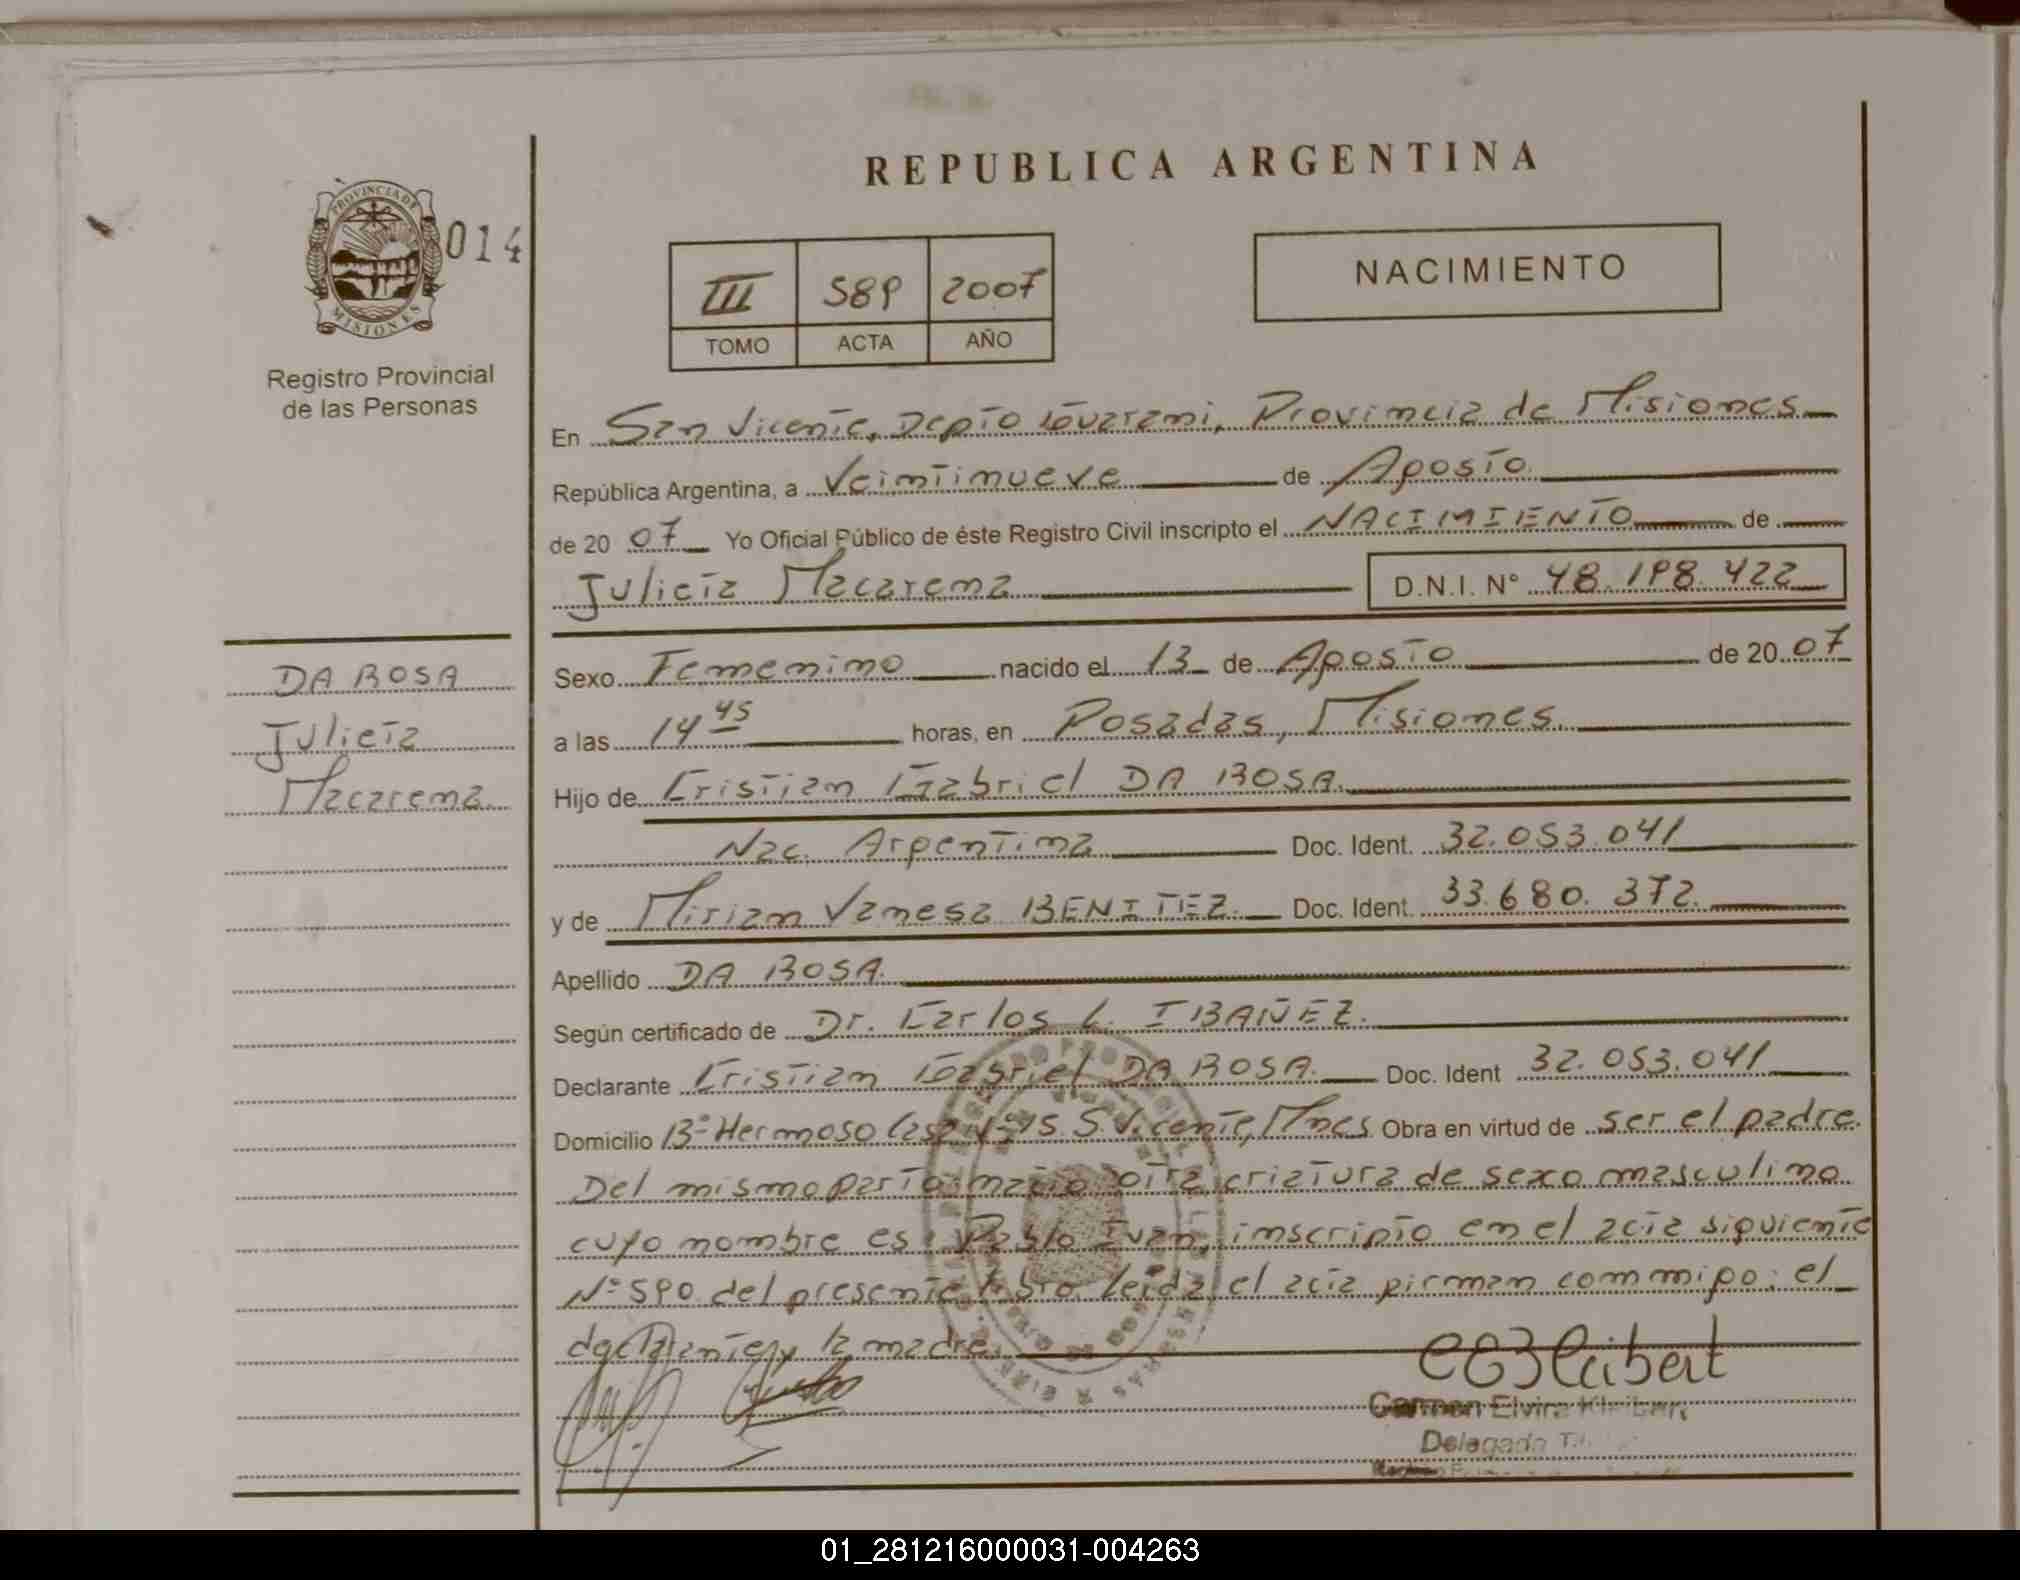 REPUBLICA ARGENTINA
PROVINCIA DE
MISIONES
014
Registro Provincial
de las Personas
III 589 2007
TOMO ACTA AÑO
NACIMIENTO
En San Vicente, Depto Guarani, Provincia de Misiones
República Argentina, a Veintinueve de Agosto
de 2007 Yo Oficial Público de éste Registro Civil inscripto el NACIMIENTO de
Julieta Macarena D.N.I. N° 48.198.422
DA ROSA
Julieta
Macarena
Sexo Femenino nacido el 13 de Agosto de 2007
a las 14 45 horas, en Posadas, Misiones.
Hijo de Cristian Gabriel DA ROSA.
Nac. Argentina Doc. Ident. 32.053.041
y de Mirian Vanesa BENITEZ. Doc. Ident. 33.680.372.
Apellido DA ROSA.
Según certificado de Dr. Carlos L. IBAÑEZ.
Declarante Cristian Gabriel DA ROSA. Doc. Ident 32.053.041
Domicilio B° Hermoso Casa S. Vicente, Mnes Obra en virtud de ser el padre.
Del mismo parto nacio otra criatura de sexo masculino
cuyo nombre es: Pablo Ivan, inscripto en el acta siguiente
N° 590 del presente libro. Leida el acta firman conmigo: el
declarante y la madre.
Carmen Elvira Kleibert
Delegada
01_281216000031-004263